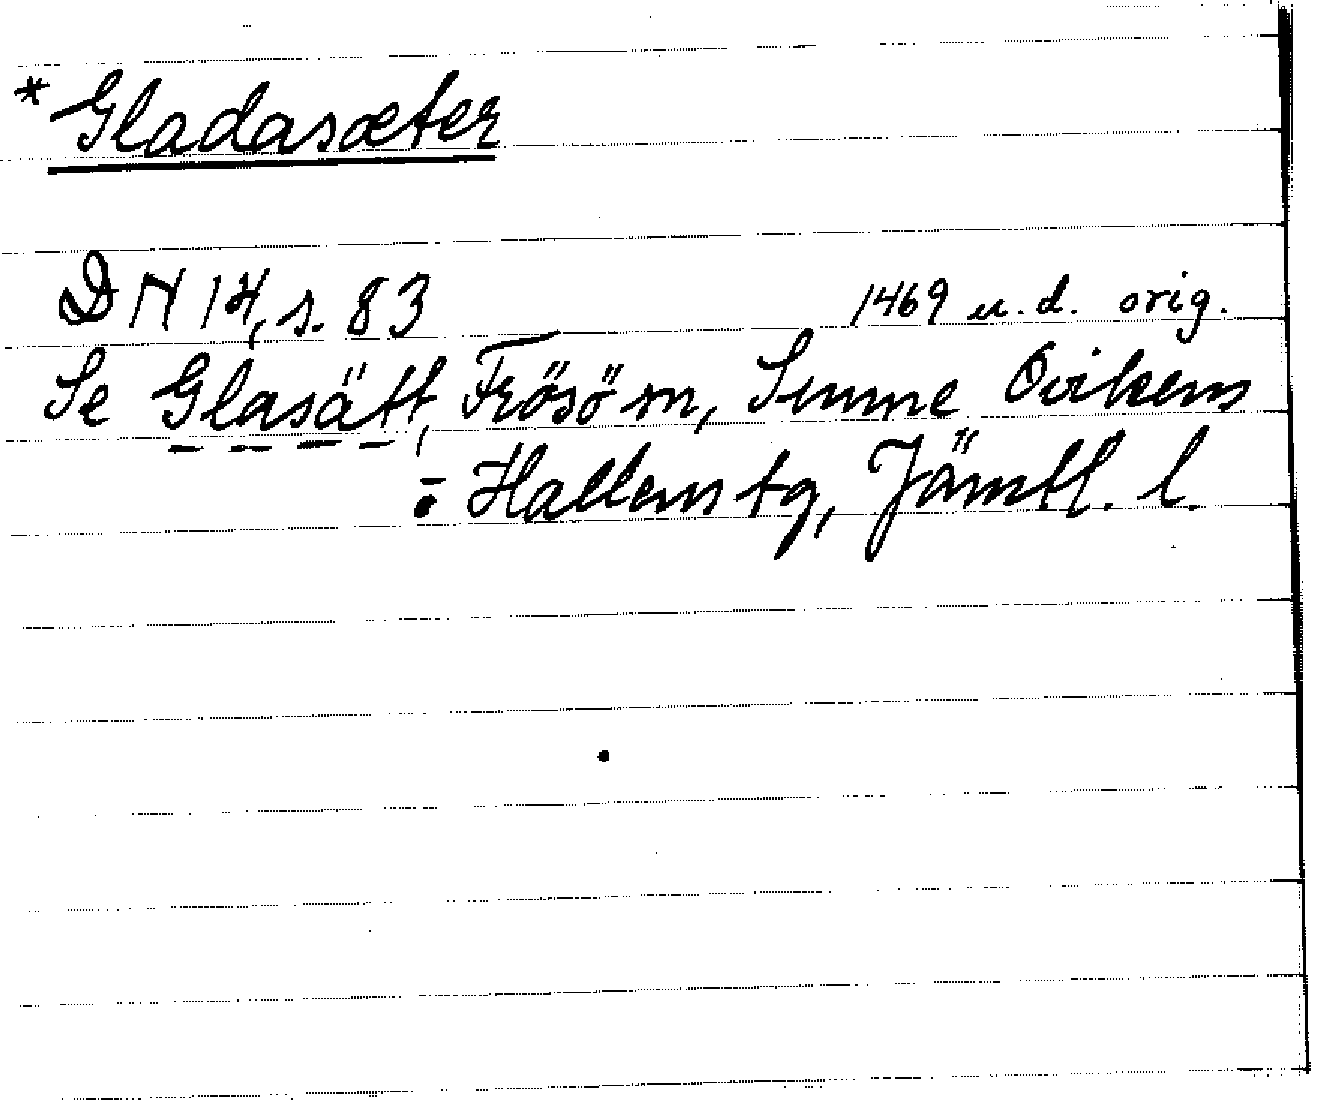 *Gladasæter
DN 14, s. 83 1469 u.d. orig.
Se Glasätt, Frösö sn, Sunne Ovikens
= Hallens tg, Jämtl. l.